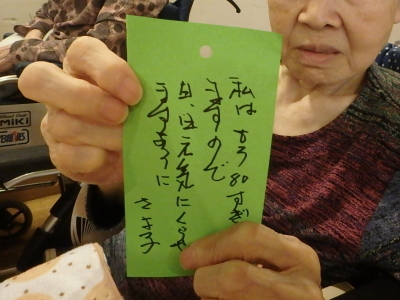 私は もう80すぎ
ますので
毎日元気にくらせ
ますように
きみ子
MIKI